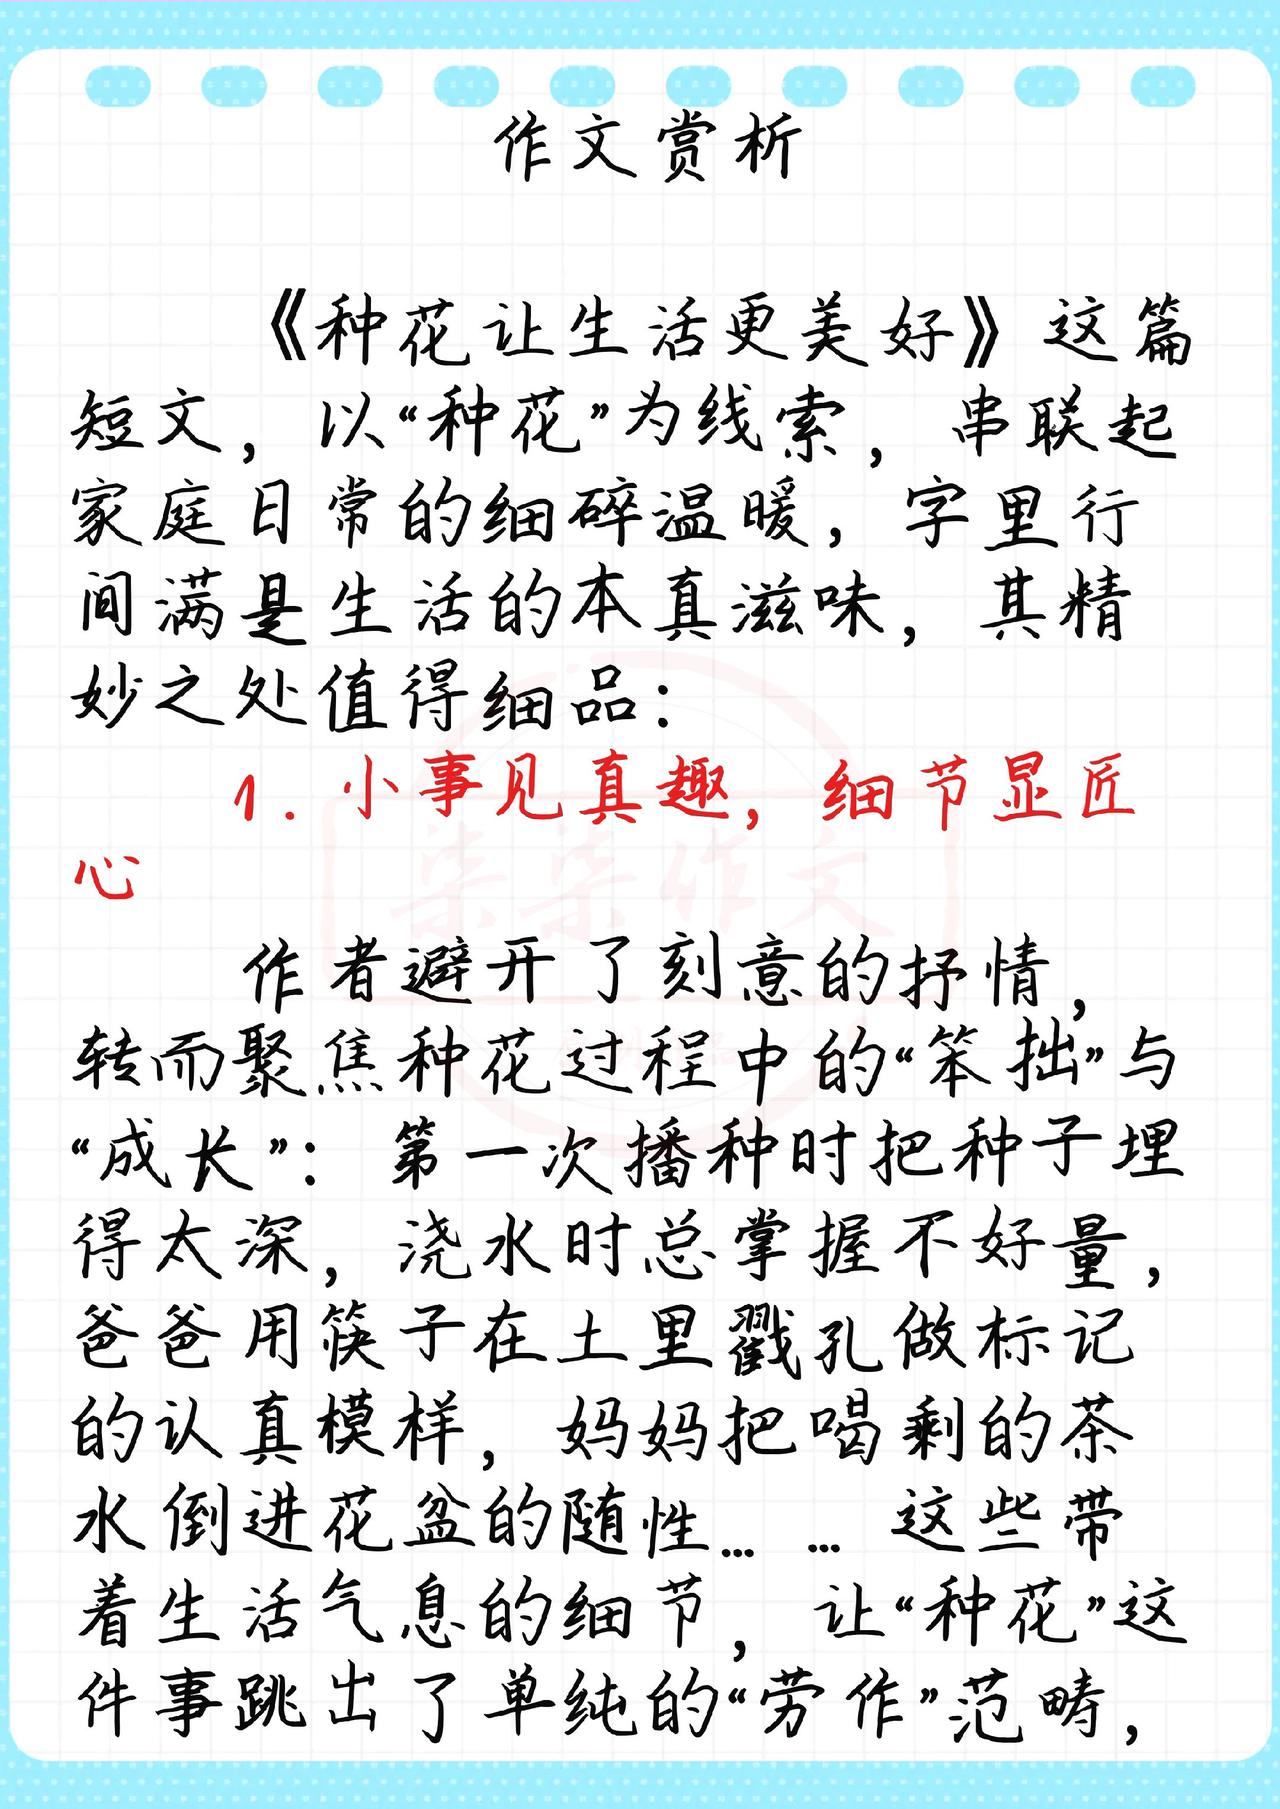 作文赏析
《种花让生活更美好》这篇
短文，以“种花”为线索，串联起
家庭日常的细碎温暖，字里行
间满是生活的本真滋味，其精
妙之处值得细品：
1.小事见真趣，细节显匠
心
柒柒作文
作者避开了刻意的抒情，
转而聚焦种花过程中的“笨拙”与
“成长”：第一次播种时把种子埋
得太深，浇水时总掌握不好量，
爸爸用筷子在土里戳孔做标记
的认真模样，妈妈把喝剩的茶
水倒进花盆的随性……这些带
着生活气息的细节，让“种花”这
件事跳出了单纯的“劳作”范畴，